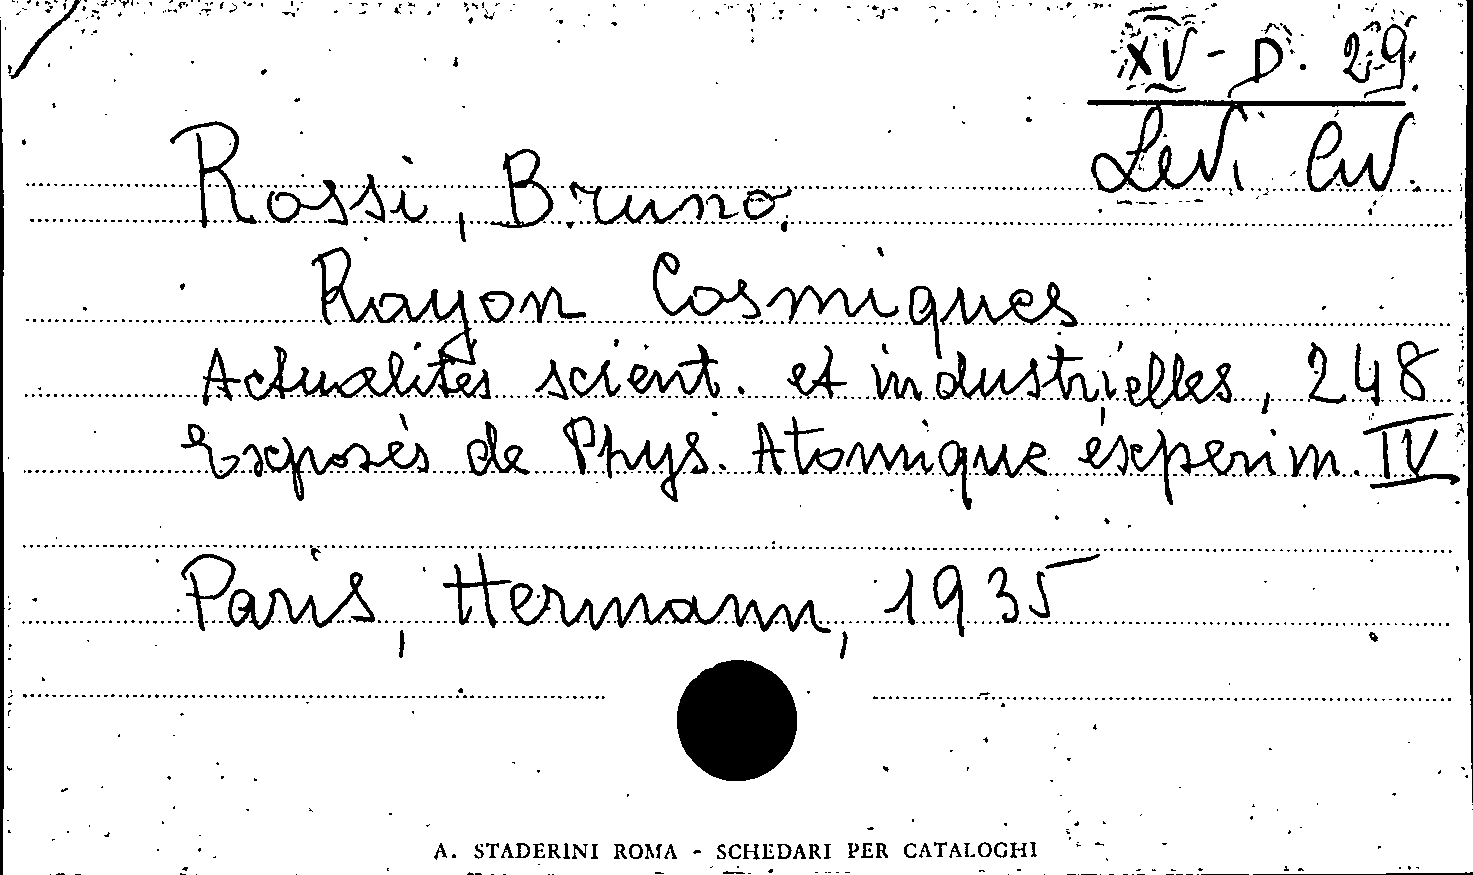 XV - D. 29
Levi Civ.
Rossi, Bruno.
Rayon Cosmiques
Actualités scient. et industrielles, 248
Exposés de Phys. Atomique éxperim. IV
Paris, Hermann, 1935
A. STADERINI ROMA - SCHEDARI PER CATALOGHI